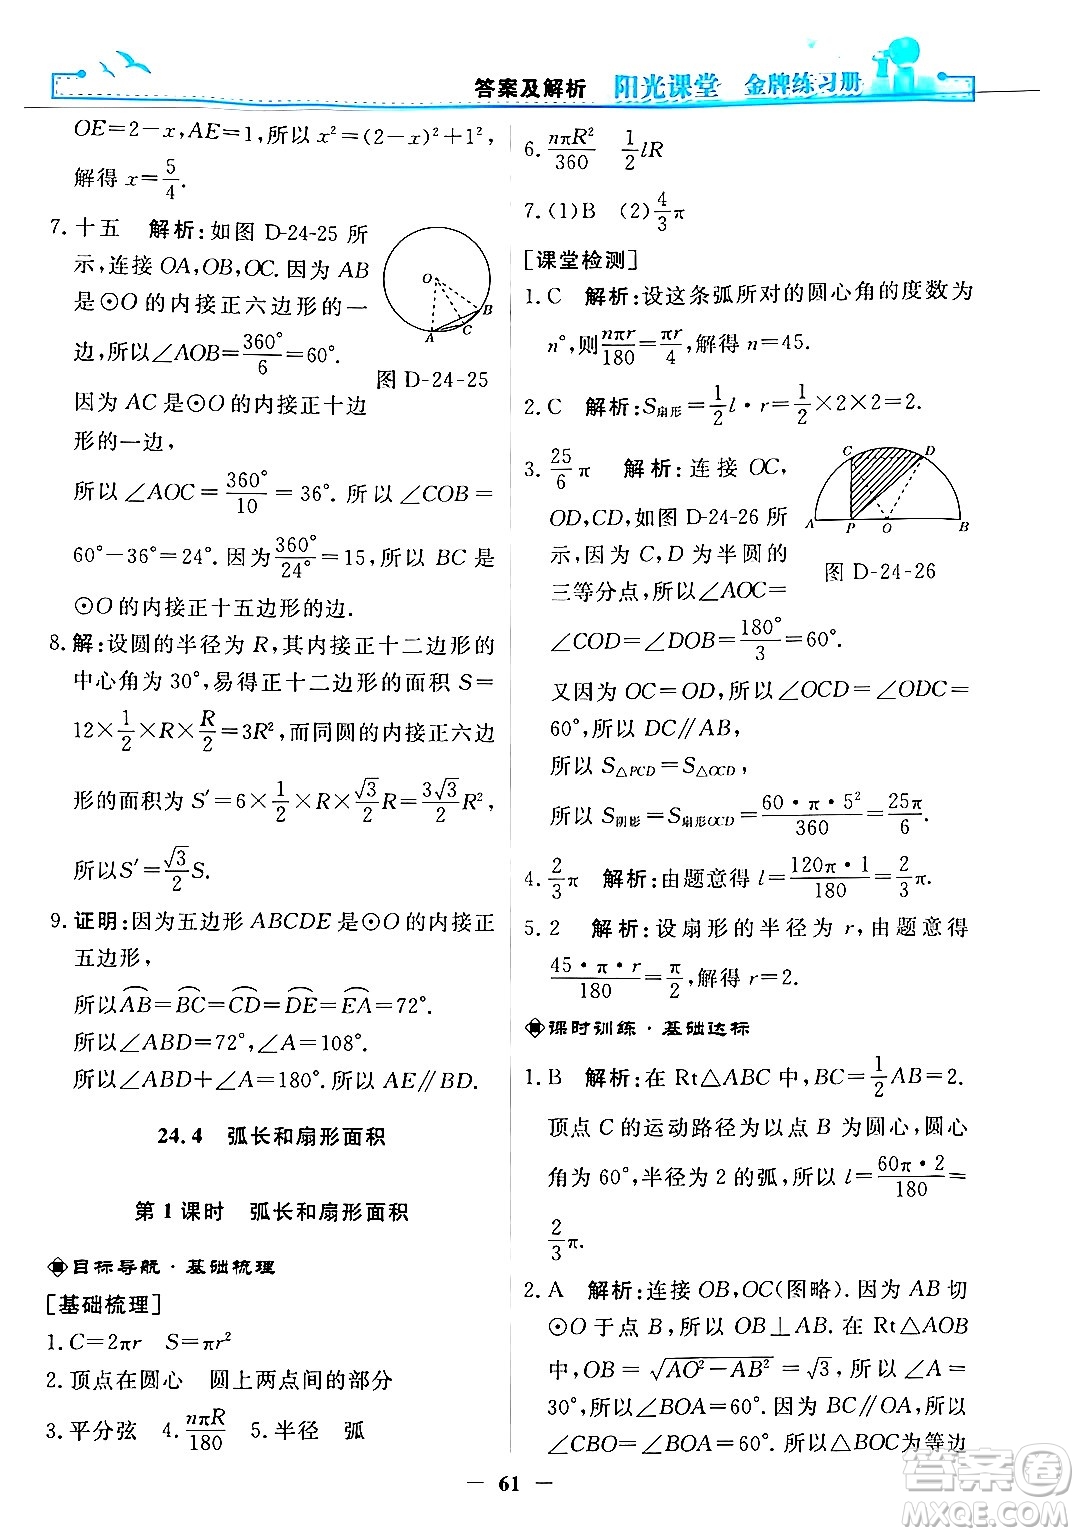 答案及解析 阳光课堂 金牌练习册
OE=2－x,AE=1,所以 x²=(2－x)²+1²,
解得 x=5/4.
7.十五 解析:如图 D-24-25 所
示,连接 OA,OB,OC.因为 AB
是⊙O 的内接正六边形的一
边,所以∠AOB=360°/6=60°.
因为 AC 是⊙O 的内接正十边
形的一边,
O
A
C
B
图 D-24-25
所以∠AOC=360°/10=36°.所以∠COB=
60°－36°=24°.因为360°/24°=15,所以 BC 是
⊙O 的内接正十五边形的边.
8.解:设圆的半径为 R,其内接正十二边形的
中心角为 30°,易得正十二边形的面积 S=
12×1/2×R×R/2=3R²,而同圆的内接正六边
形的面积为 S′=6×1/2×R×√3/2R=3√3/2R²,
所以S′=√3/2S.
9.证明:因为五边形 ABCDE 是⊙O 的内接正
五边形,
所以⌒AB=⌒BC=⌒CD=⌒DE=⌒EA=72°.
所以∠ABD=72°,∠A=108°.
所以∠ABD+∠A=180°.所以 AE∥BD.
24.4 弧长和扇形面积
第 1 课时 弧长和扇形面积
目标导航·基础梳理
[基础梳理]
1.C=2πr S=πr²
2.顶点在圆心 圆上两点间的部分
3.平分弦 4.nπR/180 5.半径 弧
6.nπR²/360 1/2lR
7.(1)B (2)4/3π
[课堂检测]
1.C 解析:设这条弧所对的圆心角的度数为
n°,则nπr/180=πr/4,解得 n=45.
2.C 解析:S扇形=1/2l·r=1/2×2×2=2.
3.25/6π 解析:连接 OC,
OD,CD,如图 D-24-26 所
示,因为 C,D 为半圆的
三等分点,所以∠AOC=
C
D
A
P
O
B
图 D-24-26
∠COD=∠DOB=180°/3=60°.
又因为 OC=OD,所以∠OCD=∠ODC=
60°,所以 DC∥AB,
所以 S△PCD=S△OCD,
所以 S阴影=S扇形OCD=60·π·5²/360=25π/6.
4.2/3π 解析:由题意得 l=120π·1/180=2/3π.
5.2 解析:设扇形的半径为 r,由题意得
45·π·r/180=π/2,解得 r=2.
课时训练·基础达标
1.B 解析:在 Rt△ABC 中,BC=1/2AB=2.
顶点 C 的运动路径为以点 B 为圆心,圆心
角为 60°,半径为 2 的弧,所以 l=60π·2/180=
2/3π.
2.A 解析:连接 OB,OC(图略).因为 AB 切
⊙O 于点 B,所以 OB⊥AB.在 Rt△AOB
中,OB=√AO²－AB²=√3,所以∠A=
30°,∠BOA=60°.因为 BC∥OA,所以
∠CBO=∠BOA=60°.所以△BOC 为等边
61
答案圈
MXQE.COM